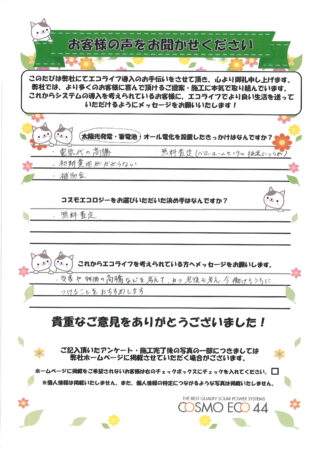 お客様の声をお聞かせください
このたびは弊社にてエコライフ導入のお手伝いをさせて頂き、心より御礼申し上げます。
弊社では、より多くのお客様に喜んで頂けるご提案・施工に本気で取り組んでいます。
これからシステムの導入を考えられているお客様に、エコライフでより良い生活を送って
いただけるようにメッセージをお願いいたします！
太陽光発電・蓄電池・オール電化を設置したきっかけはなんですか？
・電気代の高騰
・初期費用がかからない
・補助金
コスモエコロジーをお選びいただいた決め手はなんですか？
・無料査定
これからエコライフを考えられている方へメッセージをお願いします。
つけることをおすすめします
貴重なご意見をありがとうございました！
ご記入頂いたアンケート・施工完了後の写真の一部につきましては
弊社ホームページに掲載させていただく場合がございます。
ホームページに掲載をご希望されないお客様は右のチェックボックスにチェックを入れてください。
※個人情報は掲載いたしません。また、個人情報の特定につながるような写真は掲載いたしません。
THE BEST QUALITY SOLAR POWER SYSTEMS
COSMO ECO 44